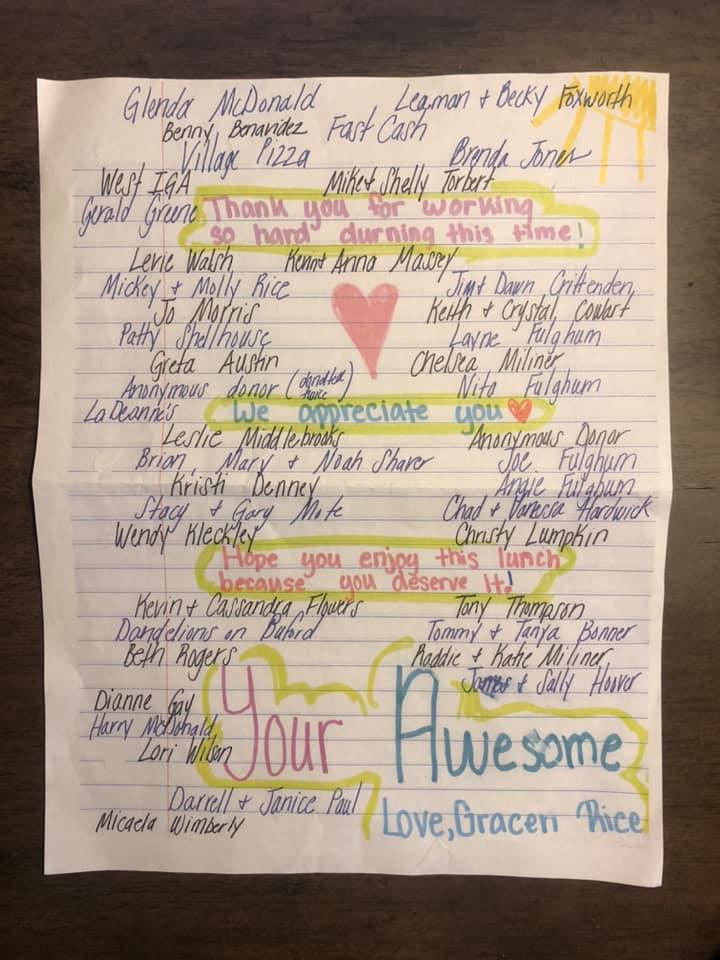 Glenda McDonald Leaman + Becky Foxworth
Benny Benavidez Fast Cash
Village Pizza Brenda Jones
West IGA Mike + Shelly Torbert
Gerald Greene Thank you for working
so hard durning this time!
Levie Walsh Kevin + Anna Massey
Mickey + Molly Rice Jim + Dawn Crittenden
Jo Morris Keith + Crystal Cowart
Patty Shellhouse Layne Fulghum
Greta Austin Chelsea Miliner
Anonymous donor (donated twice) Nita Fulghum
LaDeanne's We appreciate you
Leslie Middlebrooks Anonymous Donor
Brian, Mary + Noah Shaver Joe Fulghum
Kristi Denney Angie Fulghum
Stacy + Gary Mote Chad + Vanessa Hardwick
Wendy Kleckley Christy Lumpkin
Hope you enjoy this lunch
because you deserve it!
Kevin + Cassandra Flowers Tony Thompson
Dandelions on Buford Tommy + Tanya Bonner
Beth Rogers Raddie + Katie Miliner
James + Sally Hoover
Dianne Gay
Harry McDonald
Lori Wilson
Your Awesome
Darrell + Janice Paul
Micaela Wimberly
Love, Gracen Rice